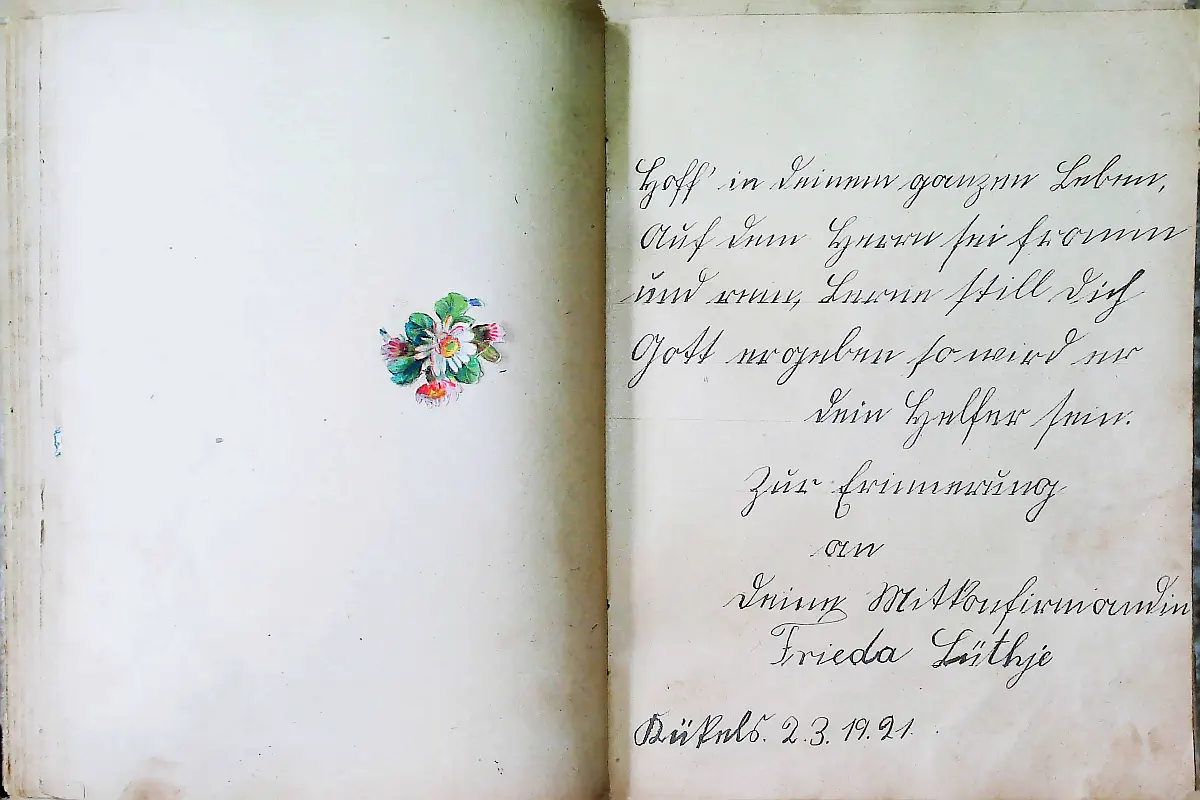 Hoff' in deinem ganzen Leben,
Auf dem Herrn sei fromm
und rein, Lerne still dich
Gott ergeben so wird er
dein Helfer sein.
Zur Erinnerung
an
deine Mitkonfirmandin
Frieda Lüthje
Kükels. 2.3.1921.